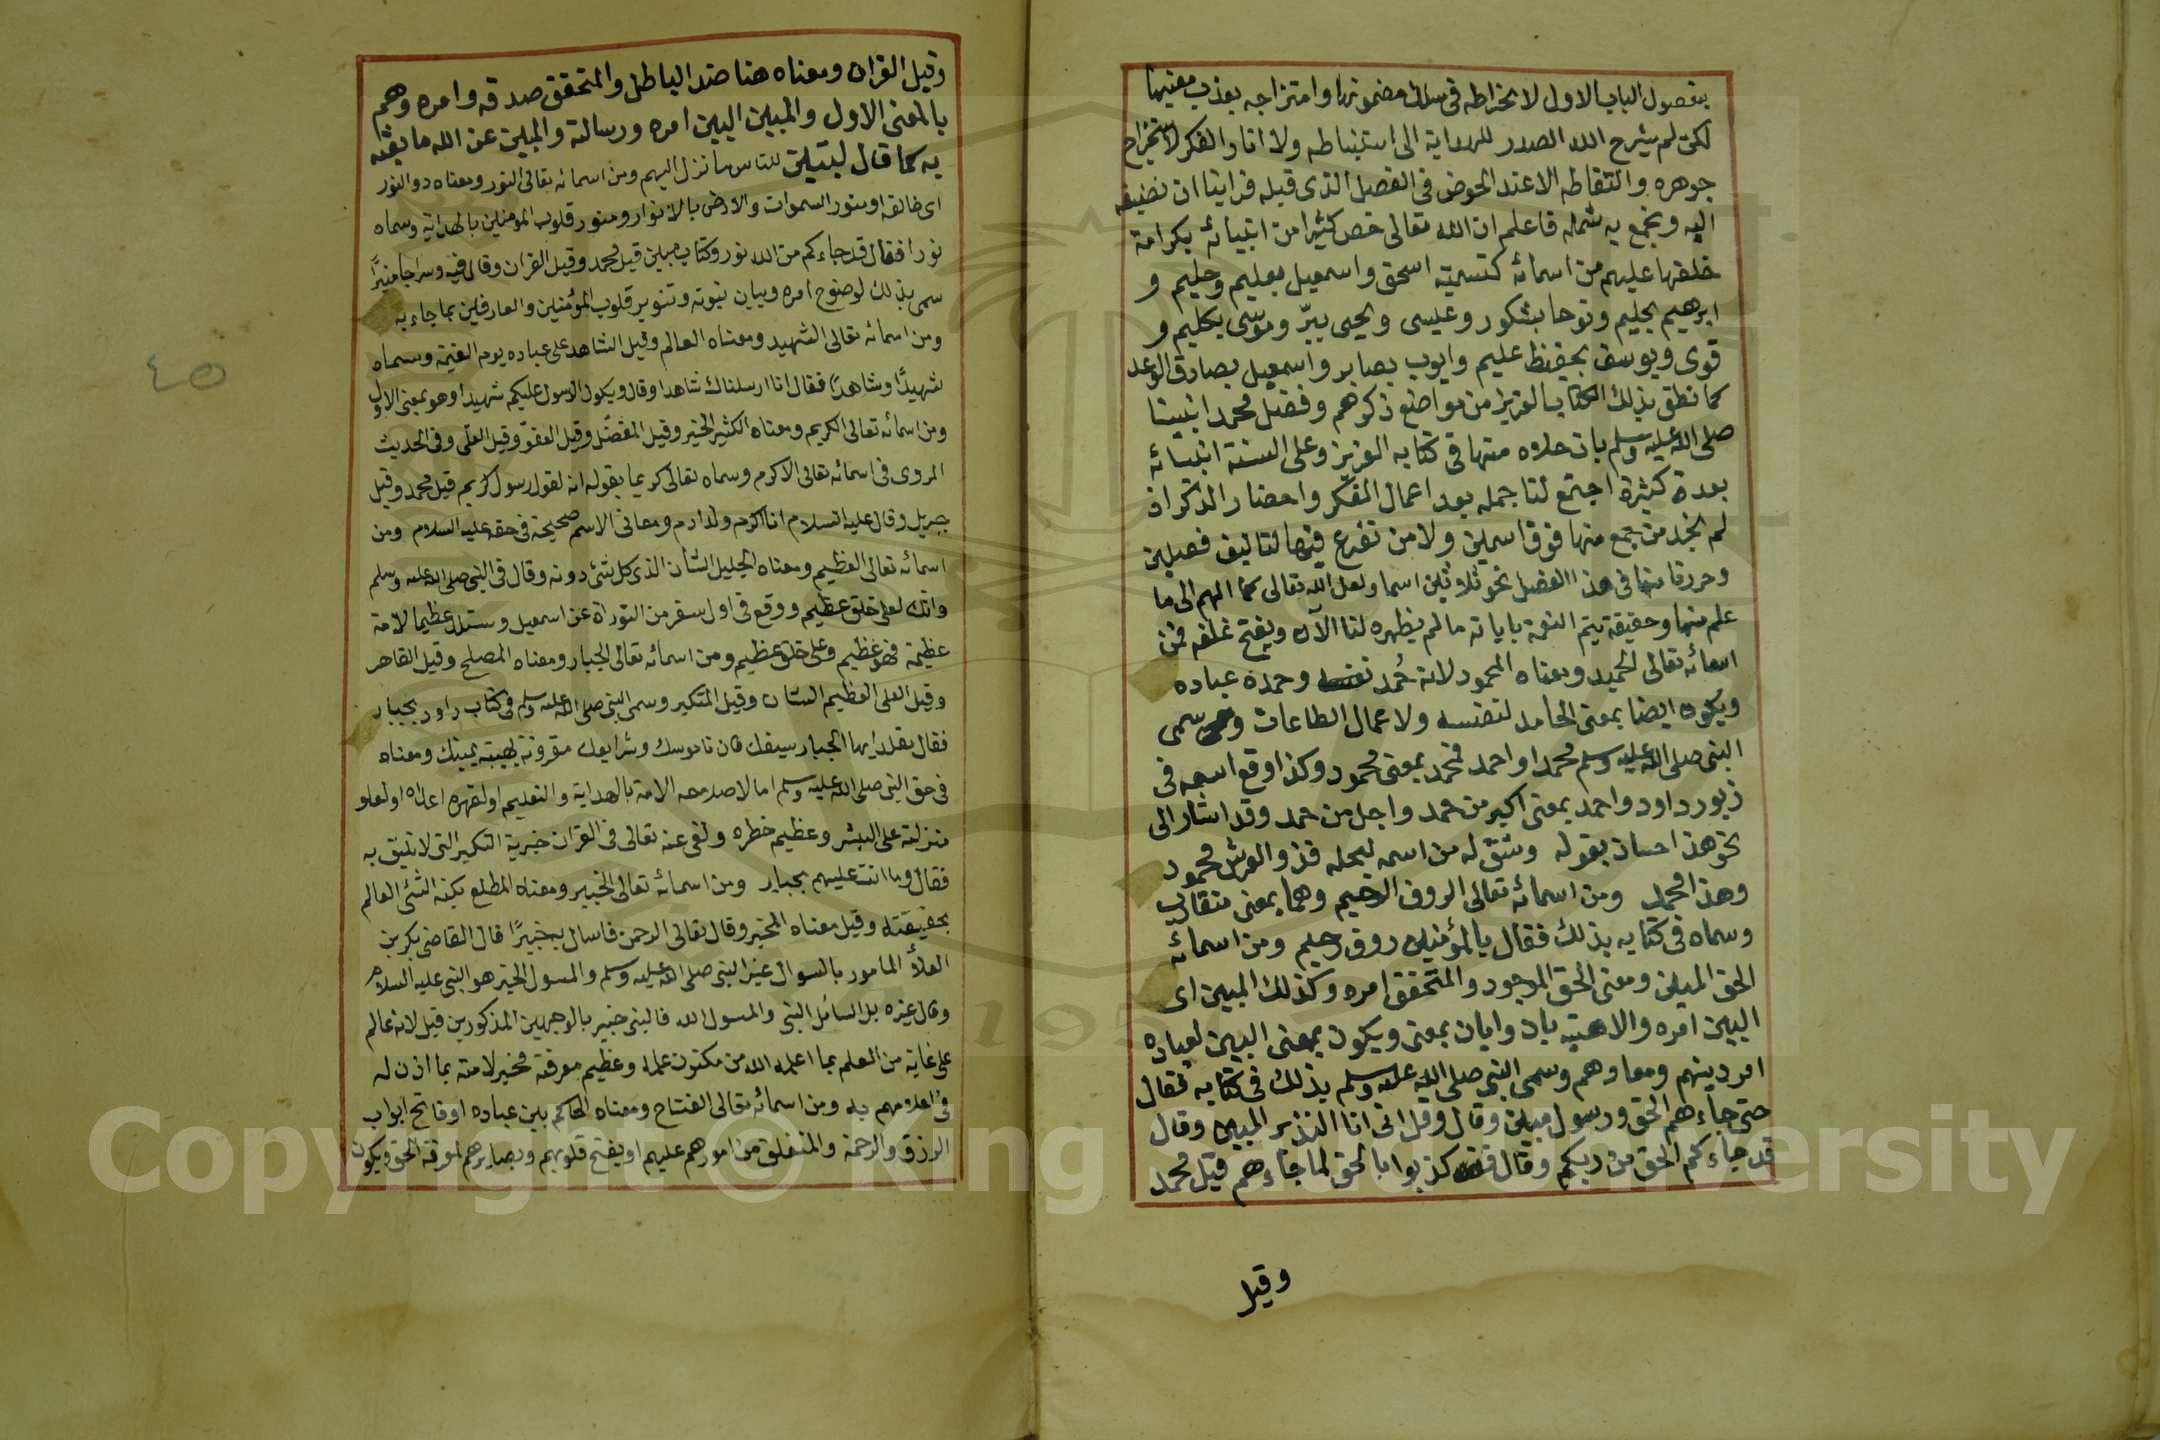 بفصول الباب الاول لانخراطه في سلك مضمونها وامتزاجه بعذب معينها
لكن لم يشرح الله الصدر للهداية الى استنباطه ولا انار الفكر لاستخراج
جوهره والتقاطه الا عند الخوض في الفصل الذى قبله فراينا ان نضيفه
اليه ونجمع به شمله فاعلم ان الله تعالى خص كثيرا من انبيائه بكرامة
خلعها عليهم من اسمائه كتسمية اسحق واسمعيل بعليم وحليم و
ابرهيم بحليم ونوحا بشكور وعيسى ويحيى ببرّ وموسى بكليم و
قوى ويوسف بحفيظ عليم وايوب بصابر واسمعيل بصادق الوعد
كما نطق بذلك الكتاب العزيز من مواضع ذكرهم وفضل محمدا نبينا
صلى الله عليه وسلم بان حلاه منها في كتابه العزيز وعلى السنة انبيائه
بعدة كثيرة اجتمع لنا جمله بعد اعمال الفكر واحضار الذكر اذ
لم نجد من جمع منها فوق اسمين ولا من تفرغ فيها لتاليف فصلين
وحررنا منها في هذا الفصل نحو ثلاثين اسما ولعل الله تعالى كما الهم الى ما
علم منها وحقيقة يتم النعمة بابانة ما لم يظهره لنا الآن ويفتح غلقه فمن
اسمائه تعالى الحميد ومعناه المحمود لانه حُمد نفسه وحمده عباده
ويكون ايضا بمعنى الحامد لنفسه ولاعمال الطاعات وسمى
النبى صلى الله عليه وسلم محمدا واحمد فمحمد بمعنى محمود وكذا وقع اسمه في
زبور داود واحمد بمعنى اكبر من حمد واجل من حمد وقد اشار الى
نحو هذا احسان بقوله وشق له من اسمه ليجله فذو العرش محمود
وهذا محمد ومن اسمائه تعالى الروف الرحيم وهما بمعنى متقارب
وسماه في كتابه بذلك فقال بالمؤمنين روف رحيم ومن اسمائه
الحق المبين ومعنى الحق الموجود والمتحقق امره وكذلك المبين اى
البين امره والاهيته بان وابان بمعنى ويكون بمعنى المبين لعباده
امر دينهم ومعادهم وسمى النبى صلى الله عليه وسلم بذلك في كتابه فقال
حتى جاءهم الحق ورسول مبين وقال وقل انى انا النذير المبين وقال
قد جاءكم الحق من ربكم وقال فقد كذبوا بالحق لما جاءهم قيل محمد
وقيل
وقيل القران ومعناه هنا ضد الباطل والمتحقق صدقه وامره وهم
بالمعنى الاول والمبين البين امره ورسالته والمبين عن الله ما بعثه
به كما قال لتبين للناس ما نزل اليهم ومن اسمائه تعالى النور ومعناه ذو النور
اى خالقه او منور السموات والارض بالانوار ومنور قلوب المومنين بالهداية وسماه
نورا فقال قد جاءكم من الله نور وكتاب مبين قيل محمد وقيل القران وقال فيه وسراجا منيرًا
سمى بذلك لوضوح امره وبيان نبوته وتنوير قلوب المؤمنين والعارفين بما جاء به
ومن اسمائه تعالى الشهيد ومعناه العالم وقيل الشاهد على عباده يوم القيمة وسماه
شهيدًا وشاهدًا فقال انا ارسلناك شاهدا وقال ويكون الرسول عليكم شهيدا وهو بمعنى الاول
ومن اسمائه تعالى الكريم ومعناه الكثير الخير وقيل المفضل وقيل العفوّ وقيل العلى وفى الحديث
المروى في اسمائه تعالى الاكرم وسماه تعالى كريما بقوله انه لقول رسول كريم قيل محمد وقيل
جبريل وقال عليه السلام انا اكرم ولد ادم ومعانى الاسم صحيحة في حقه عليه السلام ومن
اسمائه تعالى العظيم ومعناه الجليل الشان الذى كل شئ دونه وقال في النبى صلى الله عليه وسلم
وانك لعلى خلق عظيم ووقع في اول سفر من التوراة عن اسمعيل وستلد عظيما لامة
عظيمة فهو عظيم وعلى خلق عظيم ومن اسمائه تعالى الجبار ومعناه المصلح وقيل القاهر
وقيل العلى العظيم الشان وقيل المتكبر وسمى النبى صلى الله عليه وسلم في كتاب داود بجبار
فقال تقلد ايها الجبار سيفك فان ناموسك وشرايعك مقرونة بهيبة يمينك ومعناه
في حق النبى صلى الله عليه وسلم اما لاصلاحه الامة بالهداية والتعليم او لقهره اعداه او لعلو
منزلته على البشر وعظيم خطره ونفى عنه تعالى في القران جبرية التكبر التى لا تليق به
فقال وما انت عليهم بجبار ومن اسمائه تعالى الخبير ومعناه المطلع بكنه الشئ العالم
بحقيقته وقيل معناه المخبر وقال تعالى الرحمن فاسال به خبيرًا قال القاضى بكر بن
العلأ المامور بالسوال غير النبى صلى الله عليه وسلم والمسول الخبير هو النبى عليه السلام
وقال غيره بل السائل النبى والمسول الله فالنبى خبير بالوجهين المذكورين قيل لانه عالم
على غاية من العلم بما اعلمه الله من مكنون علمه وعظيم معرفته مخبر لامته بما اذن له
في اعلامهم به ومن اسمائه تعالى الفتاح ومعناه الحاكم بين عباده او فاتح ابواب
الرزق والرحمة والمنغلق من امورهم عليهم او يفتح قلوبهم وبصايرهم لمعرفة الحق ويكون
٤٥
Copyright © King Saud University